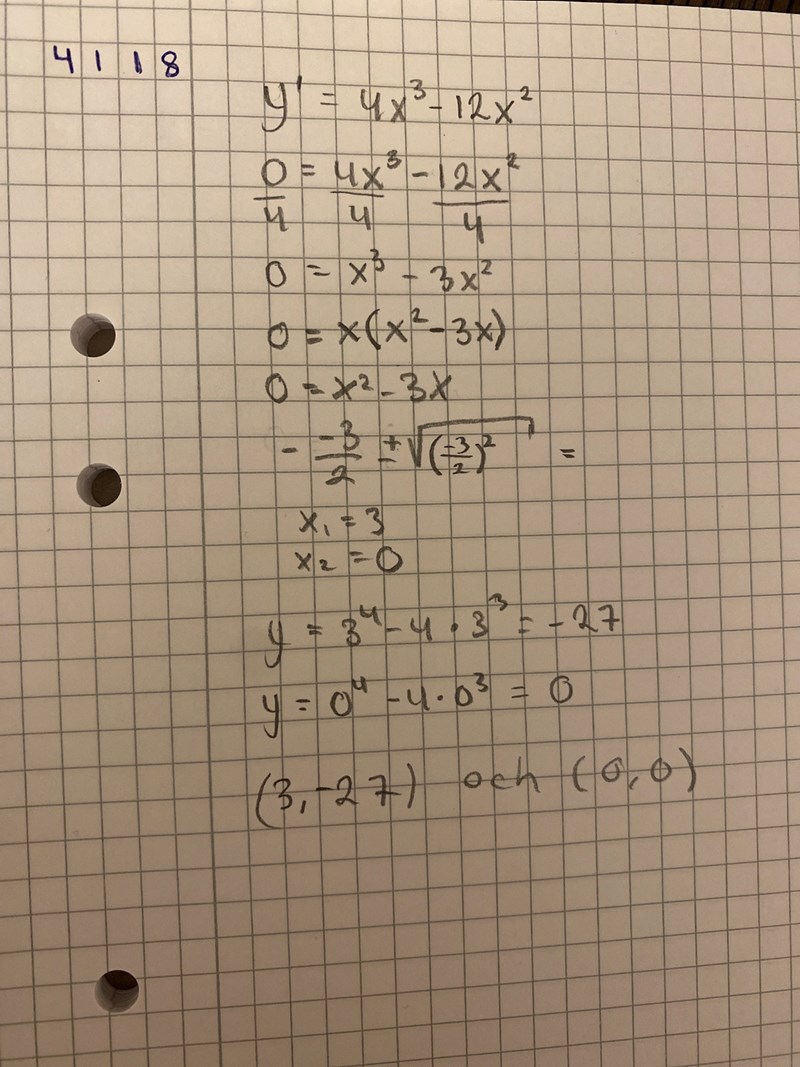 4118
y' = 4x³ - 12x²
0/4 = 4x³/4 - 12x²/4
0 = x³ - 3x²
0 = x(x² - 3x)
0 = x² - 3x
- -3/2 ± √(-3/2)² =
x₁ = 3
x₂ = 0
y = 3⁴ - 4 · 3³ = -27
y = 0⁴ - 4 · 0³ = 0
(3, -27) och (0, 0)